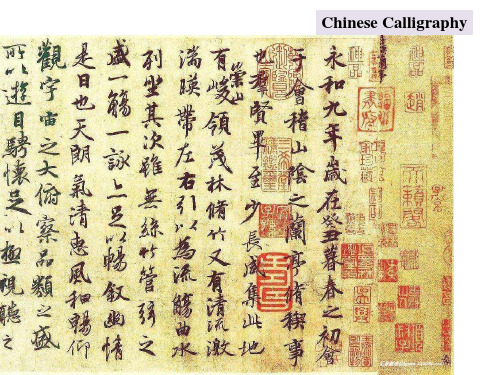 Chinese Calligraphy
永和九年歲在癸丑暮春之初會
于會稽山陰之蘭亭脩稧事
也羣賢畢至少長咸集此地
有崇山峻領茂林脩竹又有清流激
湍暎帶左右引以為流觴曲水
列坐其次雖無絲竹管弦之
盛一觴一詠亦足以暢敘幽情
是日也天朗氣清惠風和暢仰
觀宇宙之大俯察品類之盛
所以遊目騁懷足以極視聽之